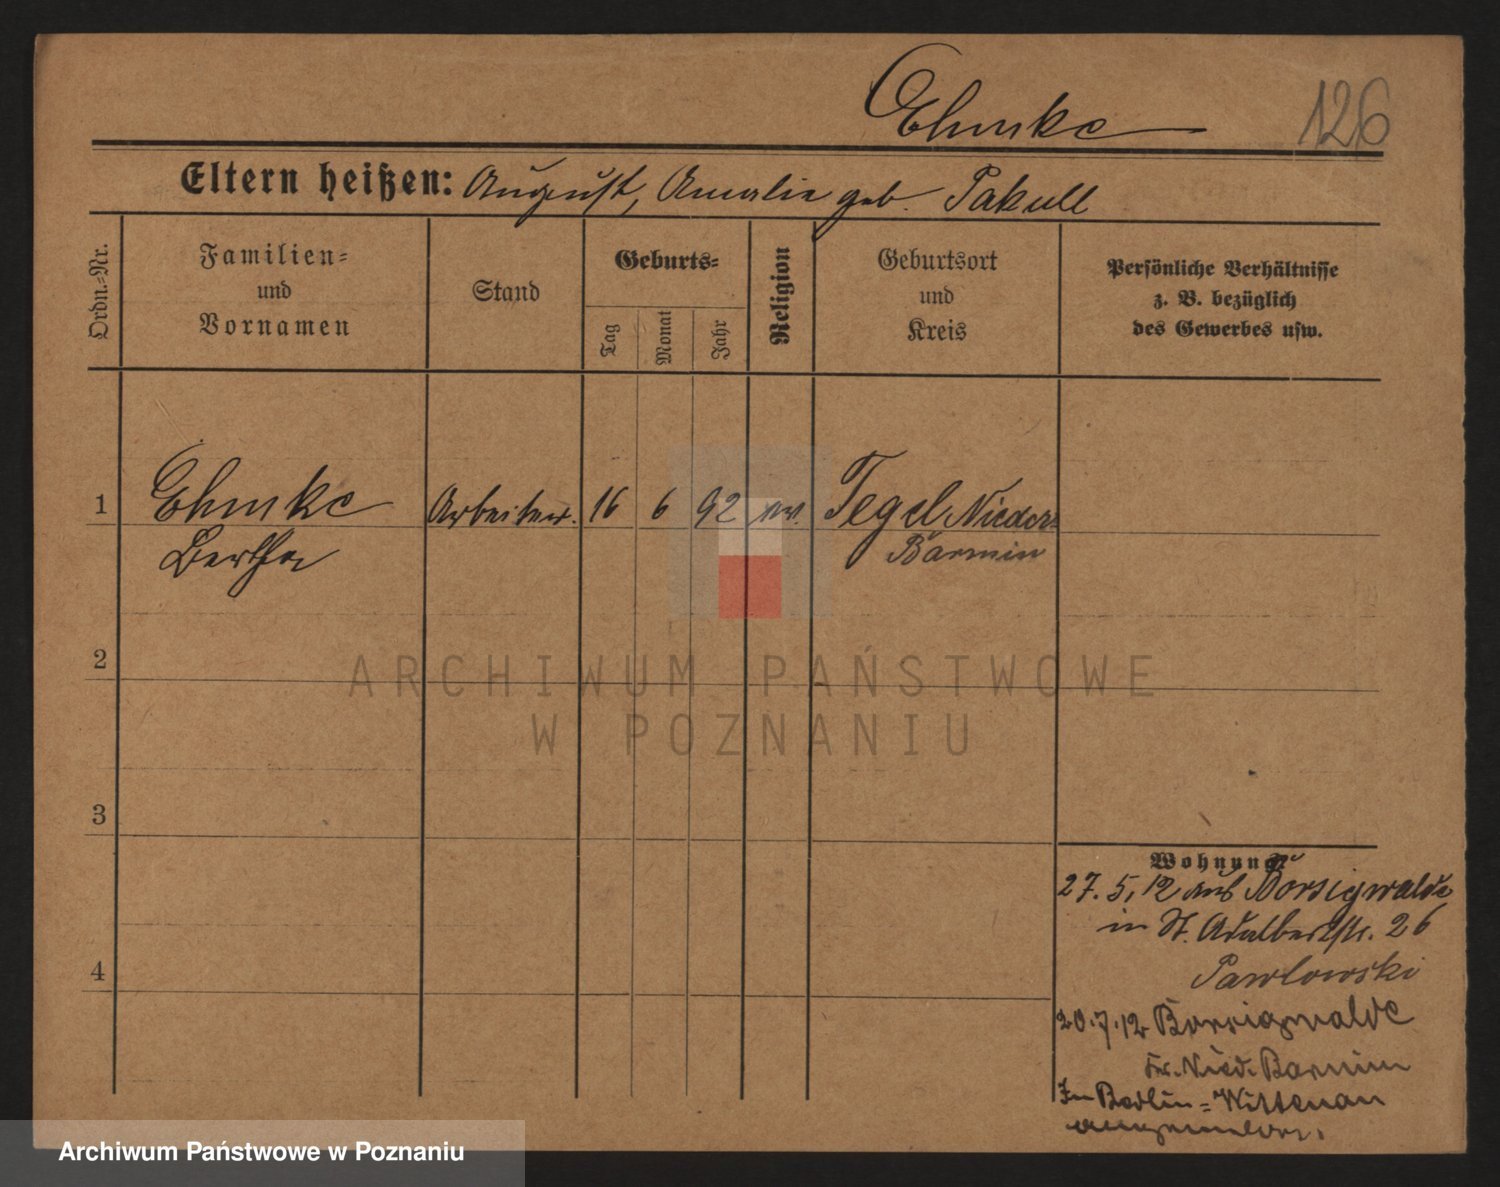 Ehmke 126
Eltern heißen: August, Amalie geb. Pakull
Ordn.=Nr.
Familien=
und
Vornamen
Stand
Geburts=
Tag
Monat
Jahr
Religion
Geburtsort
und
Kreis
Persönliche Verhältnisse
z. B. bezüglich
des Gewerbes usw.
1 Ehmke Arbeiter. 16 6 92 ev. Tegel Nieder=
Bertha Barnim
2
3
4
Wohnung
27. 5. 12 aus Borsigwalde
in St. Adalbertstr. 26
Pawlowski
20. 7. 12 Borsigwalde
Kr. Nied. Barnim
In Berlin=Wittenau
ARCHIWUM PAŃSTWOWE
W POZNANIU
Archiwum Państwowe w Poznaniu